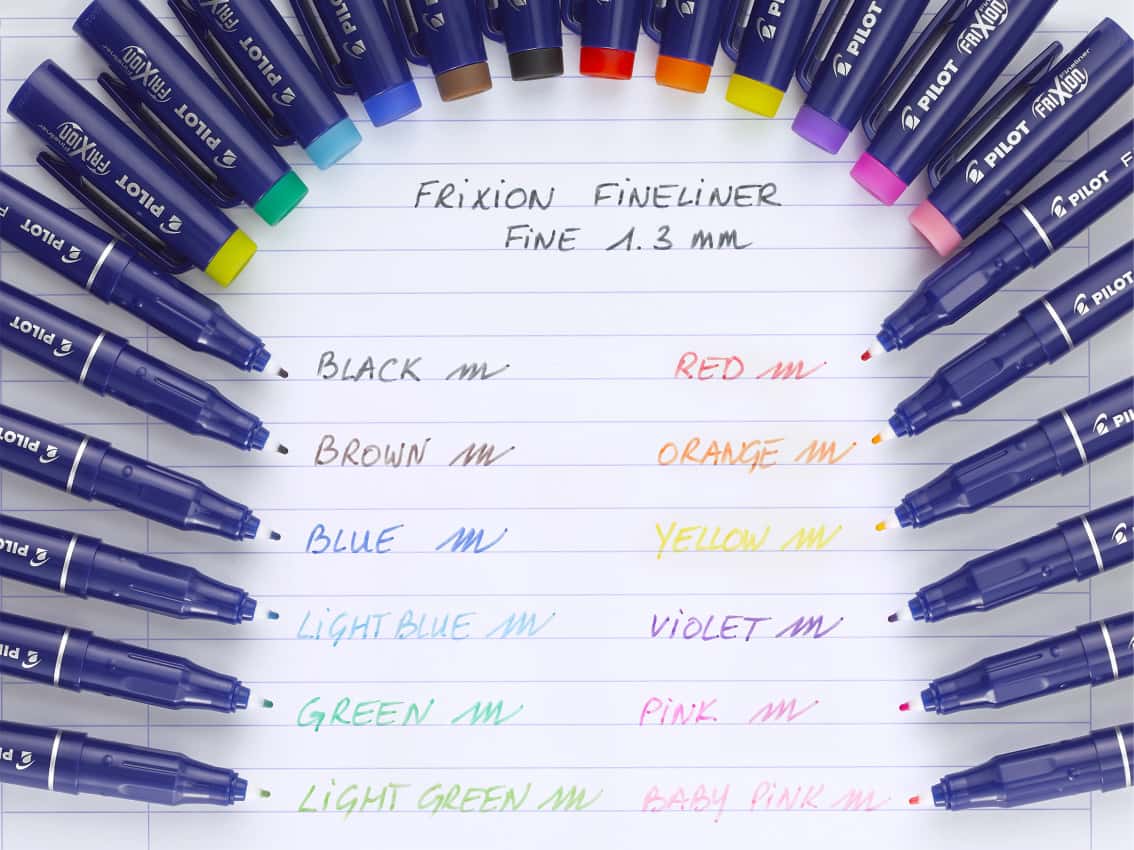 PILOT FRIXION Fineliner
PILOT FRIXION Fineliner
PILOT FRIXION
PILOT
PILOT
PILOT FRIXION
PILOT FRIXION Fineliner
PILOT
PILOT
PILOT
PILOT
PILOT
PILOT
FRIXION FINELINER
FINE 1.3 mm
BLACK
RED
BROWN
ORANGE
BLUE
YELLOW
LIGHT BLUE
VIOLET
GREEN
PINK
LIGHT GREEN
BABY PINK